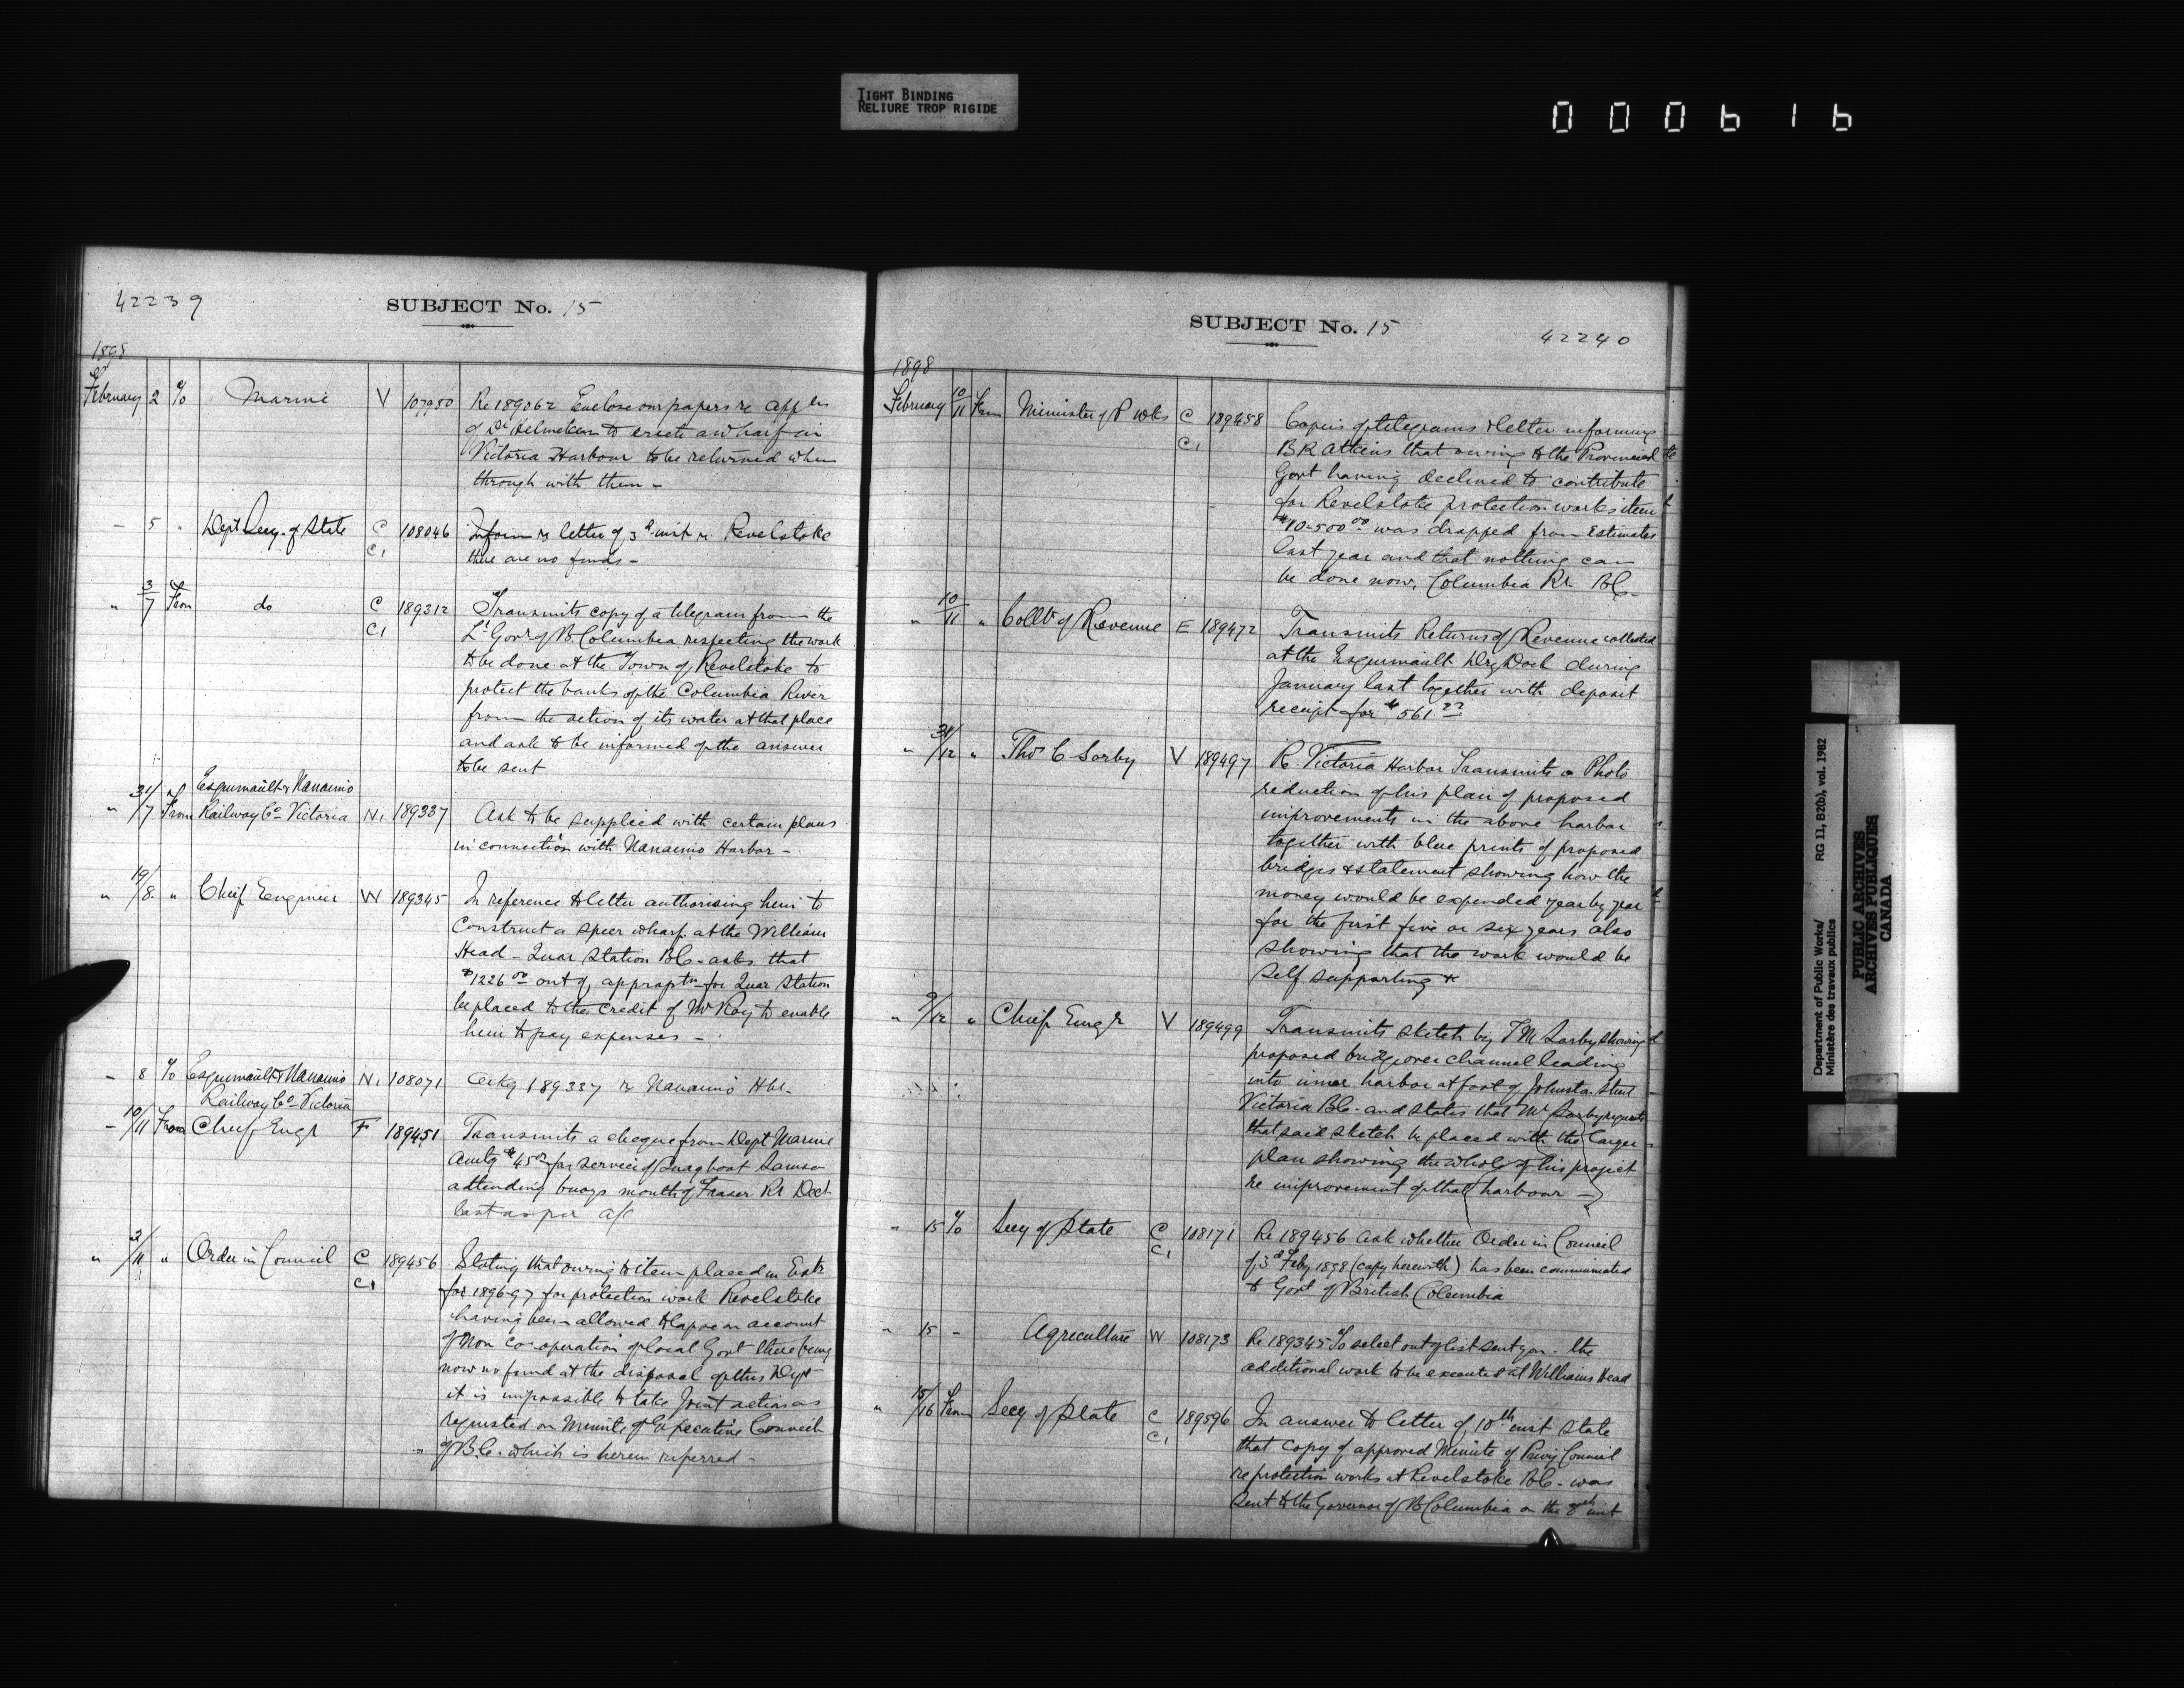 TIGHT BINDING
RELIURE TROP RIGIDE
000616
42239
SUBJECT No. 15
1898
February 2 To Marine V 107950 Re 189062 Enclose our papers re appln
of Dr Helmcken to erect a wharf in
Victoria Harbour to be returned when
through with them -
- 5 " Dept Secy. of State C C1 108046 Inform re letter of 3d inst re Revelstoke
there are no funds -
" 3/7 From do C C1 189312 Transmits copy of a telegram from the
Lt Govr of B Columbia respecting the work
to be done at the Town of Revelstoke to
protect the banks of the Columbia River
from the action of its water at that place
and ask to be informed of the answer
to be sent
Esquimault & Nanaimo
" 31/7 From Railway Co Victoria N1 189337 Ask to be supplied with certain plans
in connection with Nanaimo Harbor -
" 19/8 " Chief Engineer W 189345 In reference to letter authorising him to
Construct a wharf at the William
Head - Quar Station BC - asks that
$1226 00 out of approptn for Quar Station
be placed to the credit of Mr Roy to enable
him to pay expenses -
- 8 To Esquimault & Nanaimo N1 108071 Ackg 189337 re Nanaimo Hbr -
Railway Co Victoria
- 10/11 From Chief Engr F 189451 Transmits a cheque from Dept Marine
Amtg $45 00 for service of Snagboat Samson
attending buoys mouth of Fraser Rr Dect
last as per a/c
" 2/11 " Order in Council C C1 189456 Stating that owing to item placed in Ests
for 1896-97 for protection work Revelstoke
having been allowed to lapse on account
of Non co-operation of local Govt there being
now no fund at the disposal of this Dept
it is impossible to take Joint action as
requested on Minute of Executive Council
of B.C. which is herein referred -
SUBJECT No. 15
42240
1898
February 10/11 From Minister of P Wks C C1 189458 Copies of telegrams & letter informing
B R Atkins that owing to the Provincial
Govt having declined to contribute
for Revelstoke protection works item
$10-500 00 was dropped from Estimates
last year and that nothing can
be done now. Columbia Rr BC -
" 10/11 " Collr of Revenue E 189472 Transmits Returns of Revenue collected
at the Esquimault Dry Dock during
January last together with deposit
receipt for $561.22
" 31/12 " Thos C Sorby V 189497 Re Victoria Harbor Transmits a Photo
reduction of his plan of proposed
improvements in the above harbor
together with blue prints of proposed
bridges & statement showing how the
money would be expended year by year
for the first five or six years also
showing that the work would be
self supporting
" 9/12 " Chief Engr V 189499 Transmits sketch by Sorby showing
proposed bridge over channel leading
into inner harbor at foot of Johnston Street
Victoria BC - and states that Mr Sorby requests
that said sketch be placed with the larger
plan showing the whole of his project
re improvement of that harbour -
" 15 To Secy of State C C1 108171 Re 189456 Ask whether Order in Council
of 3d Feby 1898 (copy herewith) has been communicated
to Govt of British Columbia
" 15 - Agriculture W 108173 Re 189345 To select out of list sent you - the
additional work to be executed at Williams Head
" 15/16 From Secy of State C C1 189596 In answer to letter of 10th inst State
that copy of approved Minute of Privy Council
re protection works at Revelstoke BC - was
sent to the Governor of B Columbia on the inst
Department of Public Works/ RG 11, B2(b), vol. 1982
Ministère des travaux publics
PUBLIC ARCHIVES
ARCHIVES PUBLIQUES
CANADA